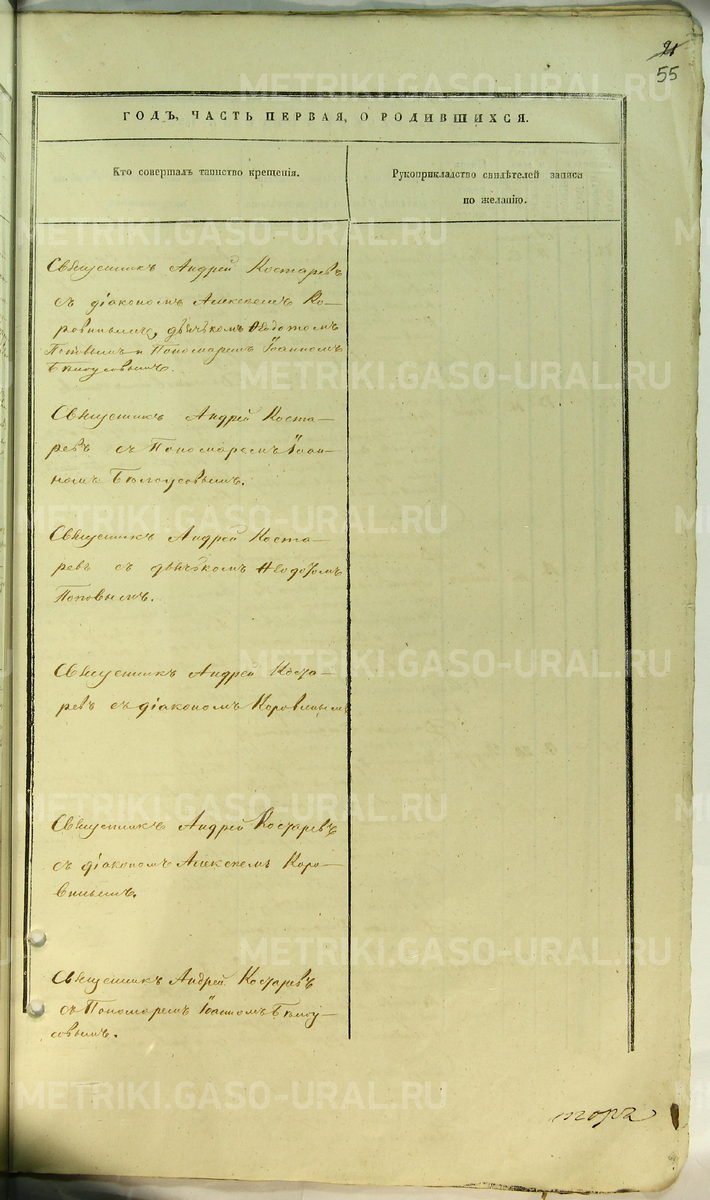 21
55
ГОДЪ, ЧАСТЬ ПЕРВАЯ, О РОДИВШИХСЯ.
Кто совершалъ таинство крещенія.
Рукоприкладство свидѣтелей записа
по желанію.
Священникъ Андрей Костаревъ
съ діакономъ Алексѣемъ Ко-
ровинымъ, дьячкомъ Ѳеодотомъ
Поповымъ и Пономаремъ Іоанномъ
Бѣлоусовымъ.
Священникъ Андрей Коста-
ревъ съ Пономаремъ Іоан-
номъ Бѣлоусовымъ.
Священникъ Андрей Коста-
ревъ съ дьячкомъ Ѳеодотомъ
Поповымъ.
Священникъ Андрей Коста-
ревъ съ діакономъ Коровинымъ
Священникъ Андрей Костаревъ
съ діакономъ Алексѣемъ Коро-
винымъ.
Священникъ Андрей Костаревъ
съ Пономаремъ Іоанномъ Бѣлоу-
совымъ.
METRIKI.GASO-URAL.RU